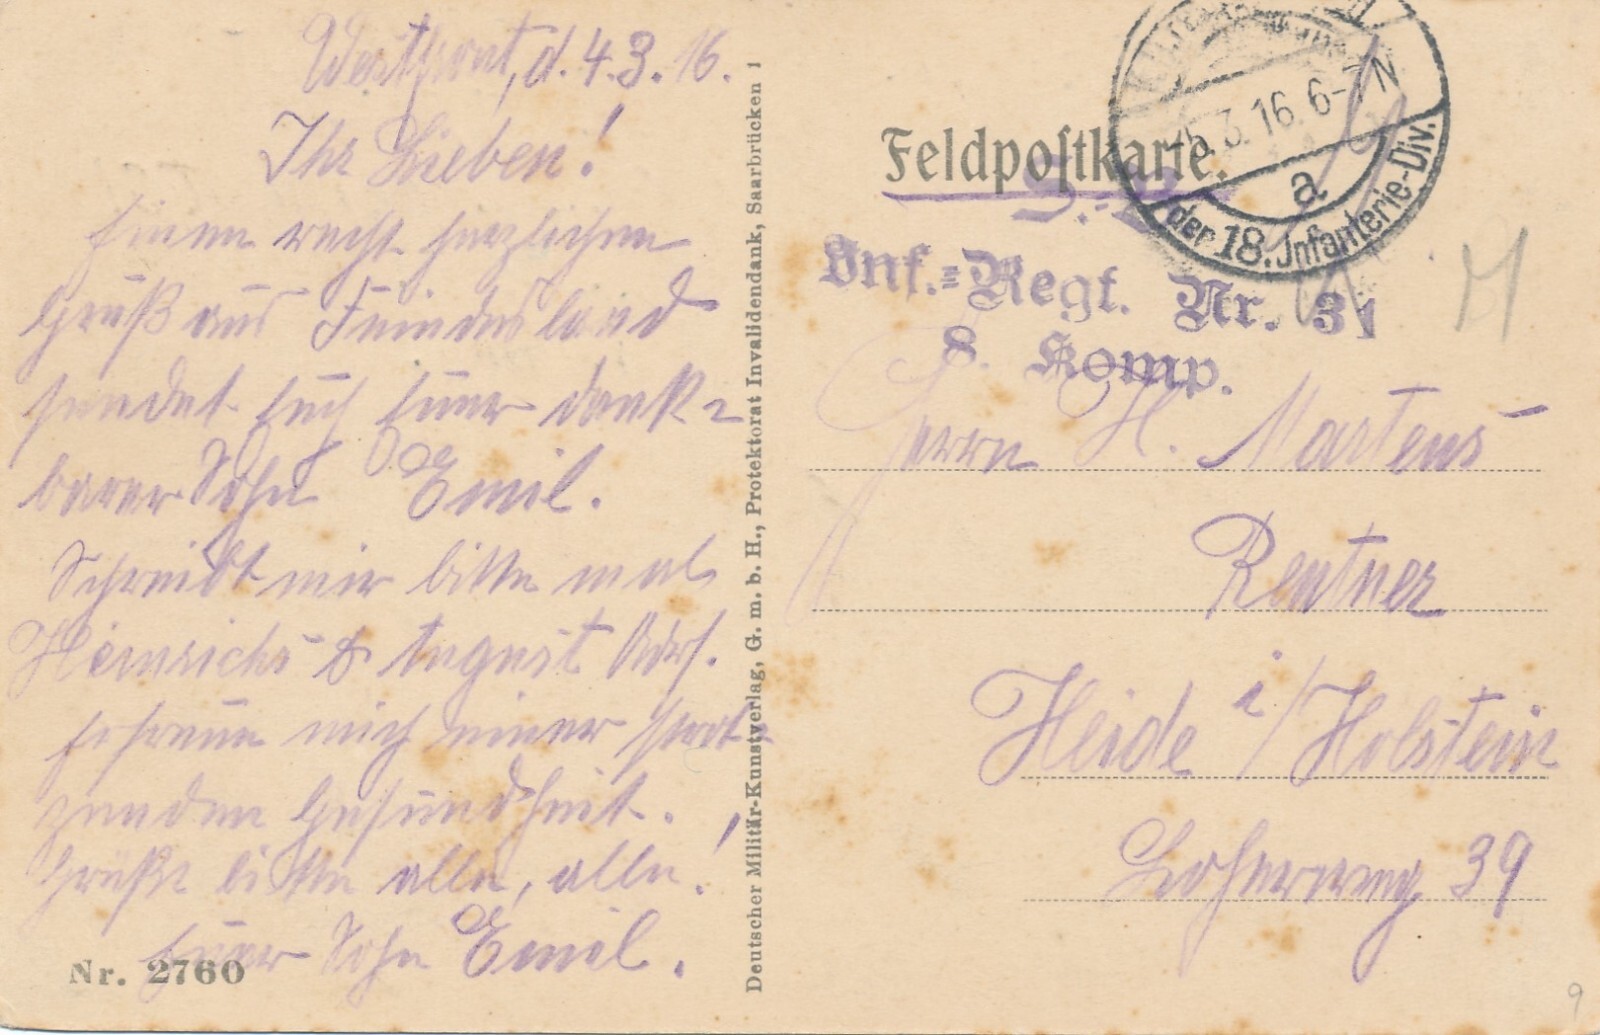 Westfront, d. 4.3.16.
Ihr Lieben!
Einen recht herzlichen
Gruß aus Feindesland
sendet Euch Euer dank=
barer Sohn Emil.
Schreibt mir bitte mal
Heinrichs & August Adrs.
Erfreue mich einer strot=
zenden Gesundheit.
Grüßt bitte alle, alle!
Euer Sohn Emil.
Nr. 2760
Deutscher Militär-Kunstverlag, G. m. b. H., Protektorat Invalidendank, Saarbrücken 1
Feldpostkarte.
S.-B.
3.16. 6-7 N
a
der 18. Infanterie-Div.
Inf.=Regt. Nr. 31
8. Komp.
Herrn H. Martens
Rentner
Heide i/Holstein
Loherweg 39
9